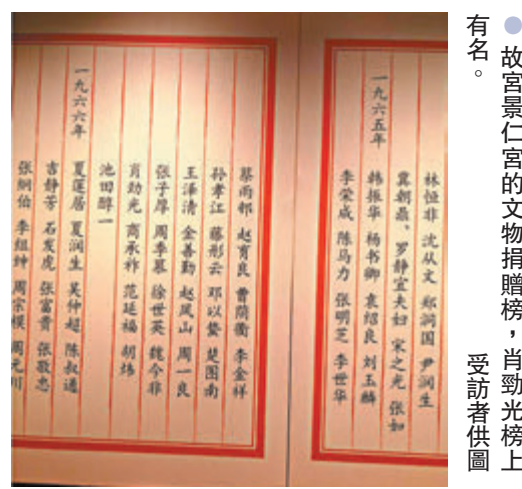 ●故宮景仁宮的文物捐贈榜，肖勁光榜上
有名。 受訪者供圖
林恒非 沈从文 郑洞国 尹润生
冀朝鼎、罗静宜夫妇 宋之光 张如
一九六五年 韩振华 杨书卿 袁绍良 刘玉麟
李荣威 陈马力 张明芝 李世华
蔡雨邨 赵育良 曹荫衢 李金祥
孙孝江 藤彤云 邓以蛰 楚图南
王泽清 金善勤 赵凤山 周一良
张子厚 周季慕 徐世英 魏今非
肖劲光 商承祚 范廷福 胡炜
池田醇一
一九六六年 夏莲居 夏润生 吴仲超 陈叔通
吉静芳 石发虎 张富贵 张敬忠
张絅伯 李组绅 周宗模 周元川